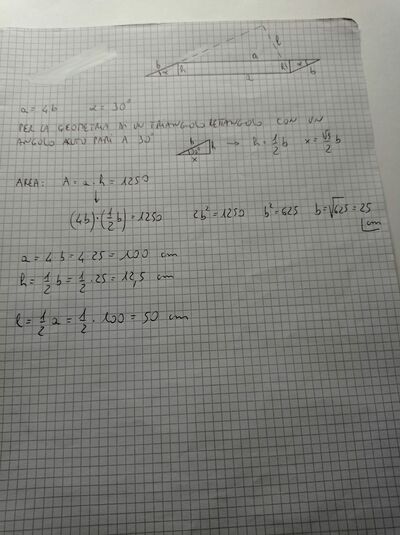 b α h a l h α b
a
a = 4b α = 30°
PER LA GEOMETRIA DI UN TRIANGOLO RETTANGOLO CON UN
ANGOLO ACUTO PARI A 30°
b h 30° x → h = 1/2 b x = √3/2 b
AREA: A = a · h = 1250
↓
(4b)·(1/2 b) = 1250 2b² = 1250 b² = 625 b = √625 = 25 cm
a = 4b = 4·25 = 100 cm
h = 1/2 b = 1/2 · 25 = 12,5 cm
l = 1/2 a = 1/2 · 100 = 50 cm